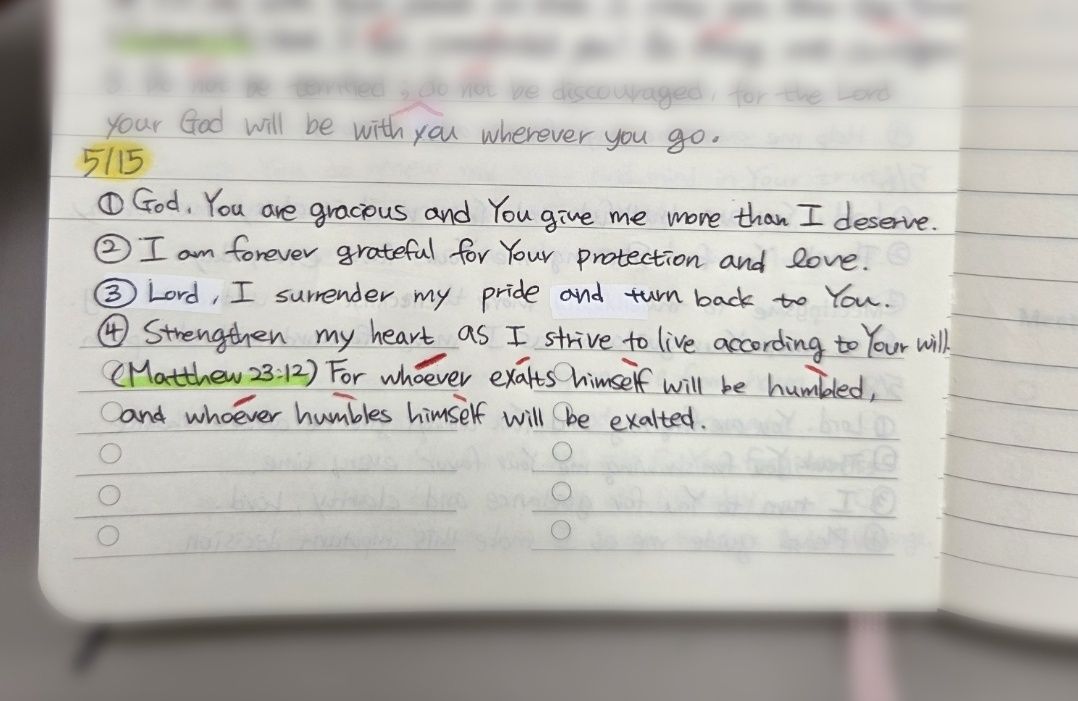 be terrified, do not be discouraged, for the Lord
your God will be with you wherever you go.
5/15
① God, You are gracious and You give me more than I deserve.
② I am forever grateful for Your protection and love.
③ Lord, I surrender my pride and turn back to You.
④ Strengthen my heart as I strive to live according to Your will.
(Matthew 23:12) For whoever exalts himself will be humbled,
and whoever humbles himself will be exalted.